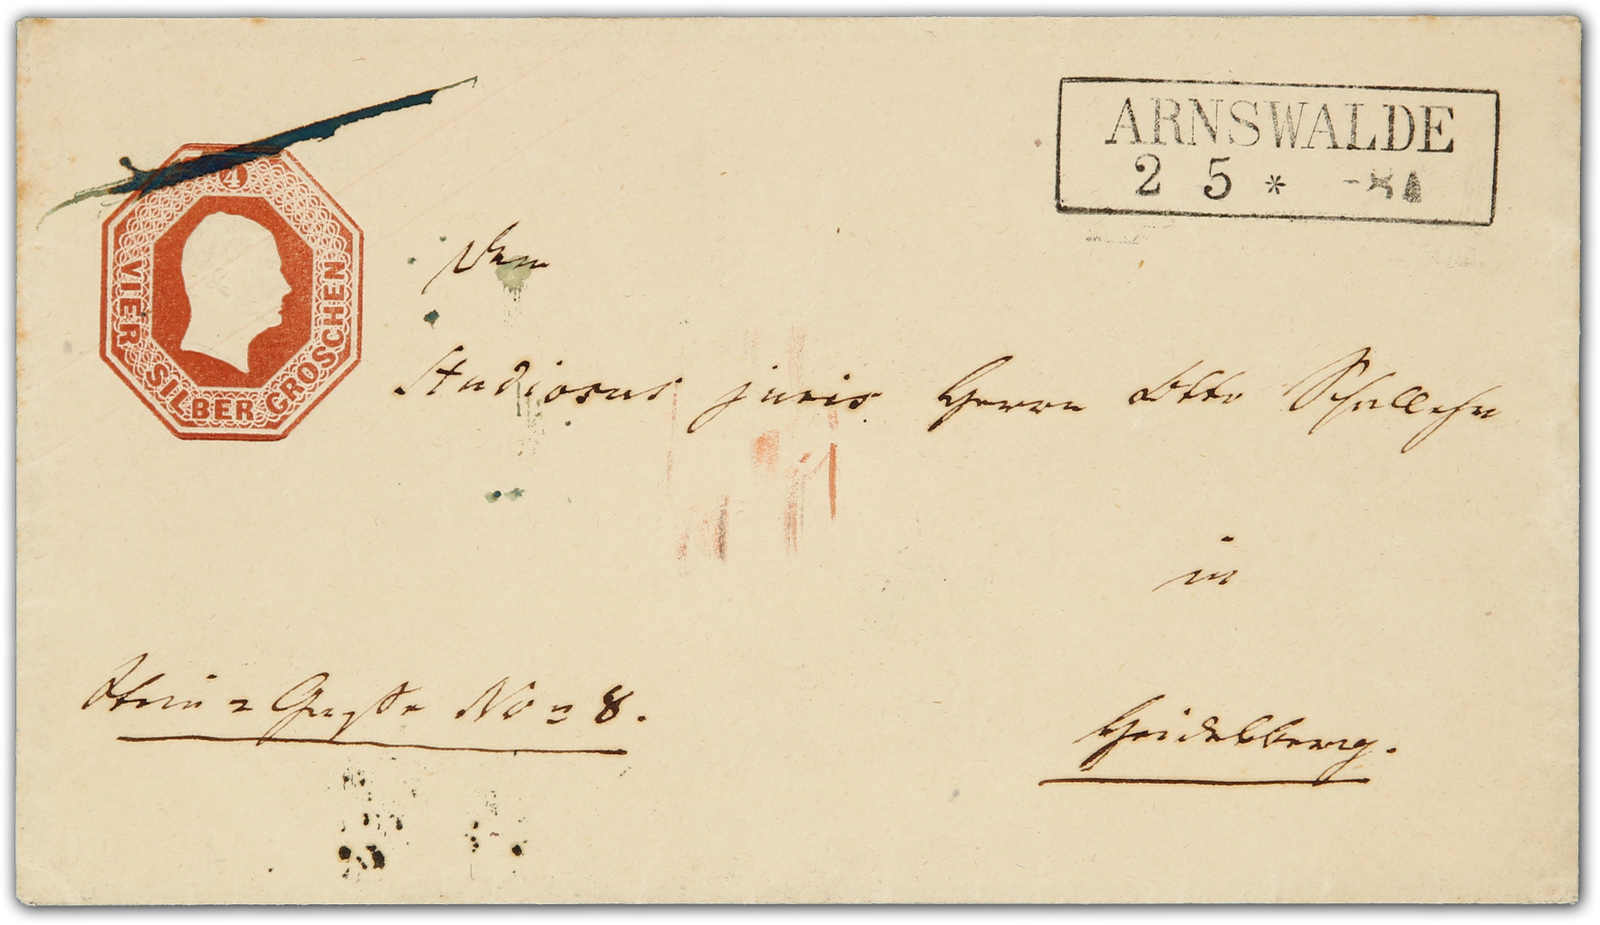 ARNSWALDE
2 5 *
4
VIER SILBER GROSCHEN
Dem
Studiosus juris Herrn Otto Schallehn
in
Stein-Gasse No 8.
Heidelberg.